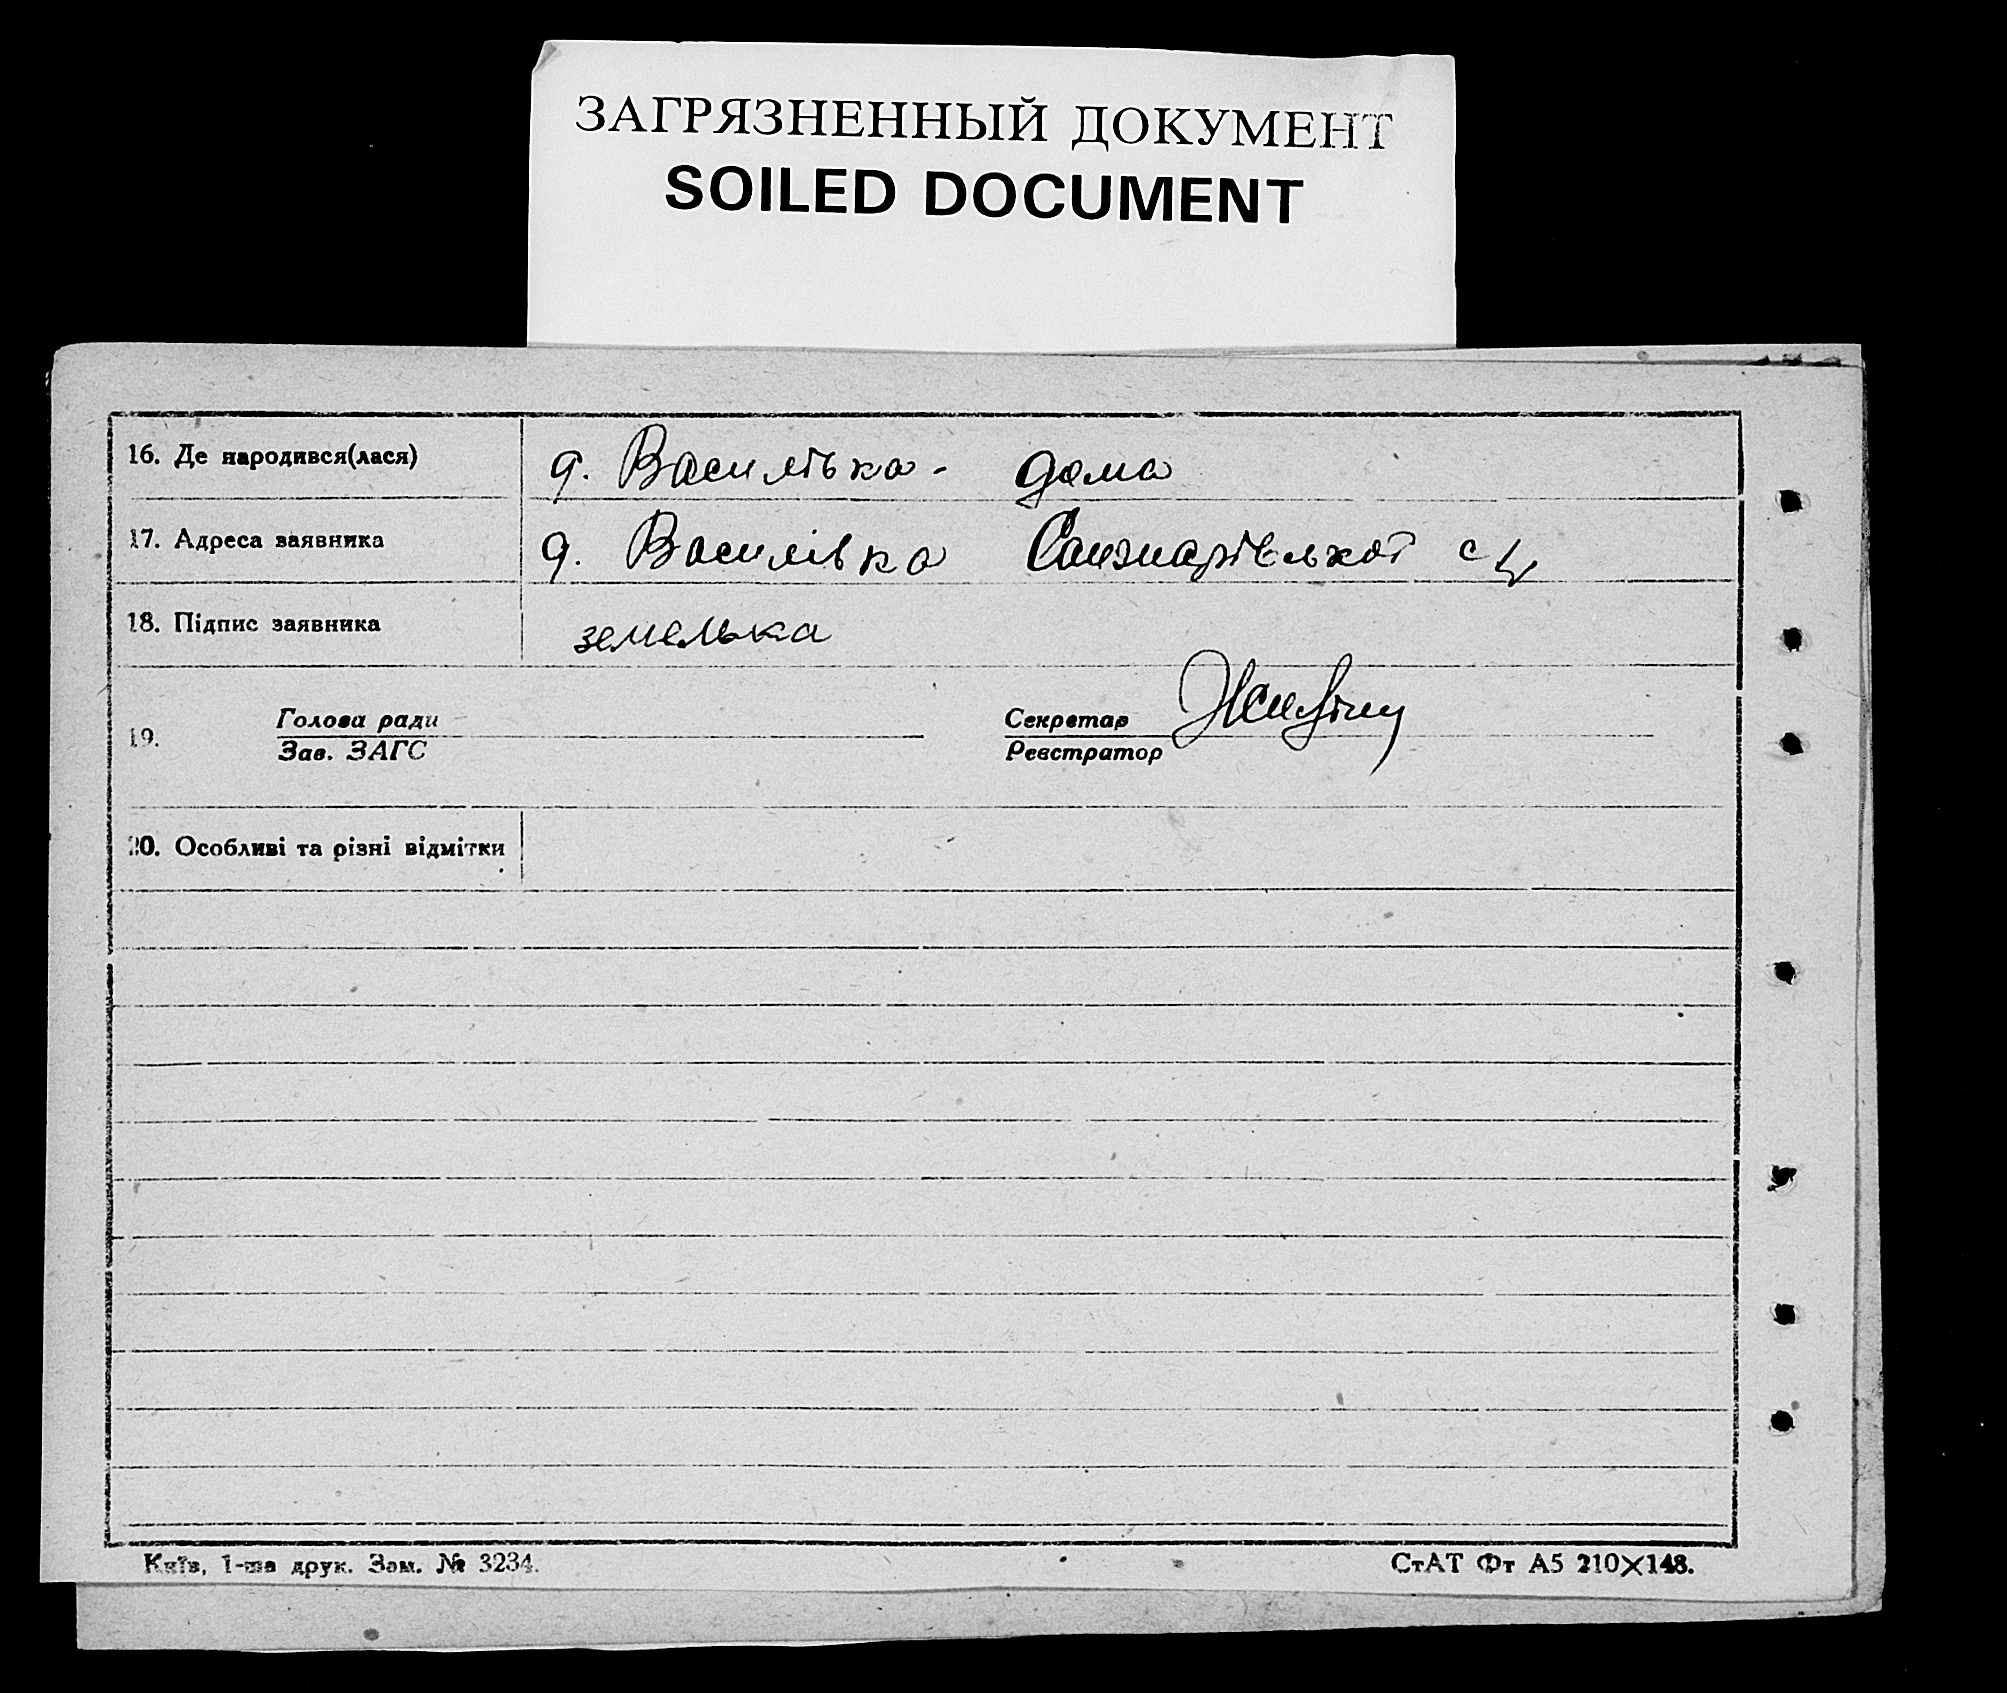 ЗАГРЯЗНЕННЫЙ ДОКУМЕНТ
SOILED DOCUMENT
16. Де народився(лася) д. Василівка - дома
17. Адреса заявника д. Василівка Санжарівської с/р
18. Підпис заявника земелька
19. Голова ради Секретар
Зав. ЗАГС Реєстратор
20. Особливі та різні відмітки
Київ, 1-ша друк. Зам. № 3234.
СтАТ Фт А5 210×148.